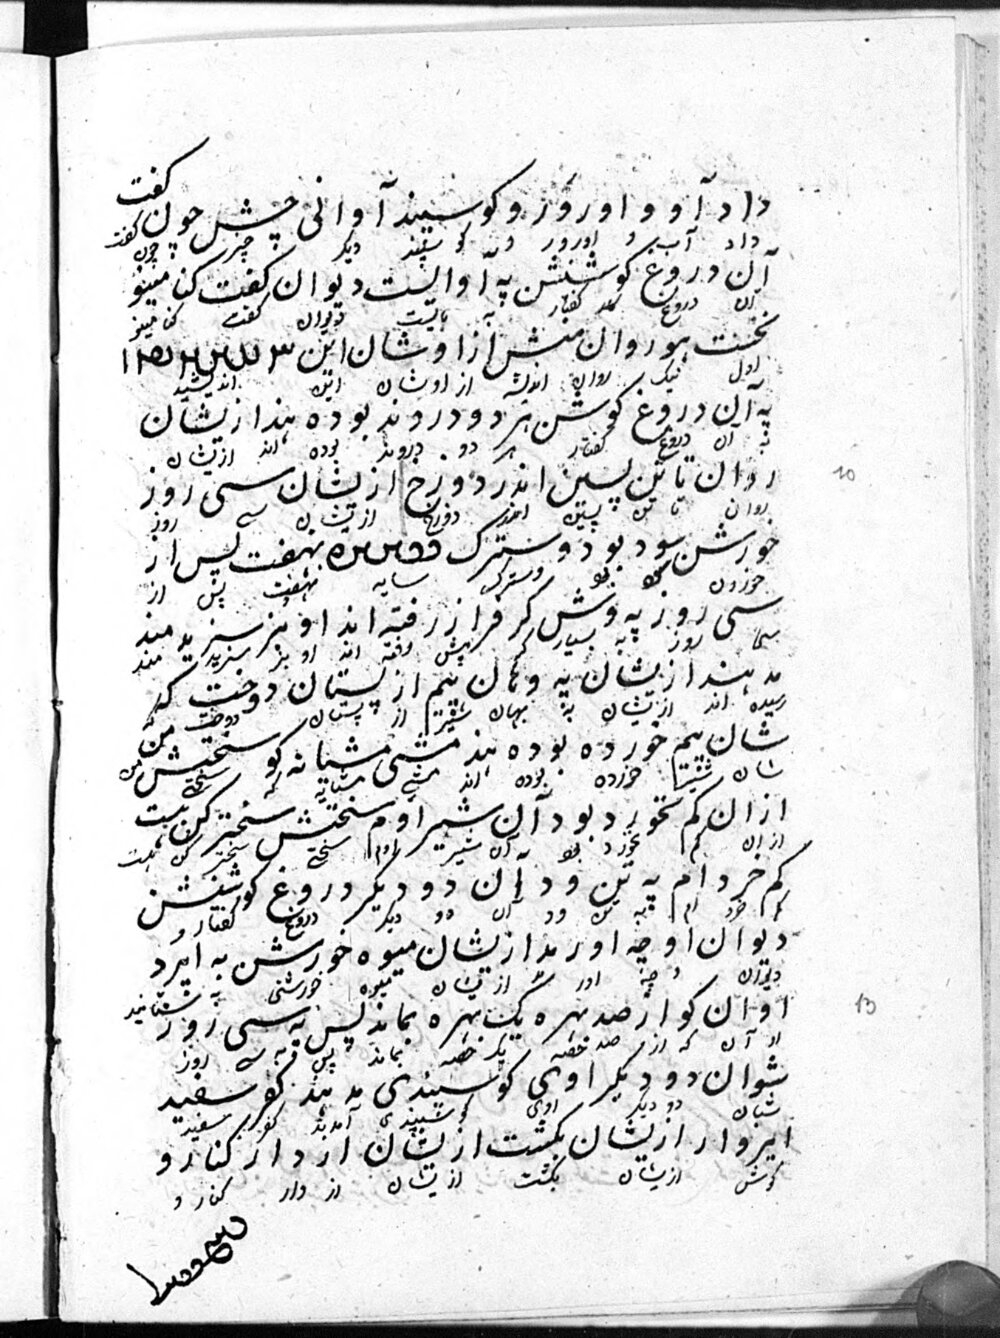 گفت
داد آو و اورور و گوسپند آوانی چش چون
داد آب و اورور و گوسپند دیگر چیز چون گفت
آن دروغ گوشنش په آوالست دیوان گفت کنامینو
آن دروغ گفتار به دیوان گفت کنامینو
نخست هو روان منش ازاوشان این
اول نیک روان اندیشه از اوشان این اندیشید
په آن دروغ گوشن هر دو دروند بوده هند ازیشان
به آن دروغ گفتار هر دو دروند بوده اند ازیشان
روان تا تن پسین اندر دوزخ ازیشان سی روز
روان تا تن پسین اندر دوزخ ازیشان سی روز
10
خورشن سود بود وسترک نهفت پس از
خوردن بود وسترک سایه نهفت پس از
سی روز په وش گر فراز رفته اند او بز سپید مند
سی روز به بسیار گر پیش رفته اند او بز سپید مند
مد هند ازیشان په وهان پیم از پستان دوخت که
رسیده اند ازیشان په بهان شیر از پستان دوخت که
شان پیم خورده بوده هند مشی مشیانه گو سختش من
شان شیر خورده بوده اند مشی مشیانه که سختی من
ازان کم نخورد بود آن شیر اوم سختش سختر کن بست
ازان کم نخورد بود آن شیر اوم سختی سختر کن
کم خرد ام په تن ود آن دو دیگر دروغ گوشنش
کم خورد ام به تن ود آن دو دیگر دروغ گفتار و
دیوان او چه اور مد ازیشان میوه خورشن به ایرد
دیوان و چه اور ازیشان میوه خورشنی به
اوان گو از صد بهره یک بهره بماند پس په سی روز
او آن که از صد حصه یک حصه بماند پس به سی روز
13
شوان دو دیگر اوی گوسپندی مد هند گفر سفید
شان دو دیگر اوی گوسپندی آمدند گفر سفید
ایروار ازیشان بکشت ازیشان از دار کنار و
گوش ازیشان بکشت ازیشان از دار کنار و